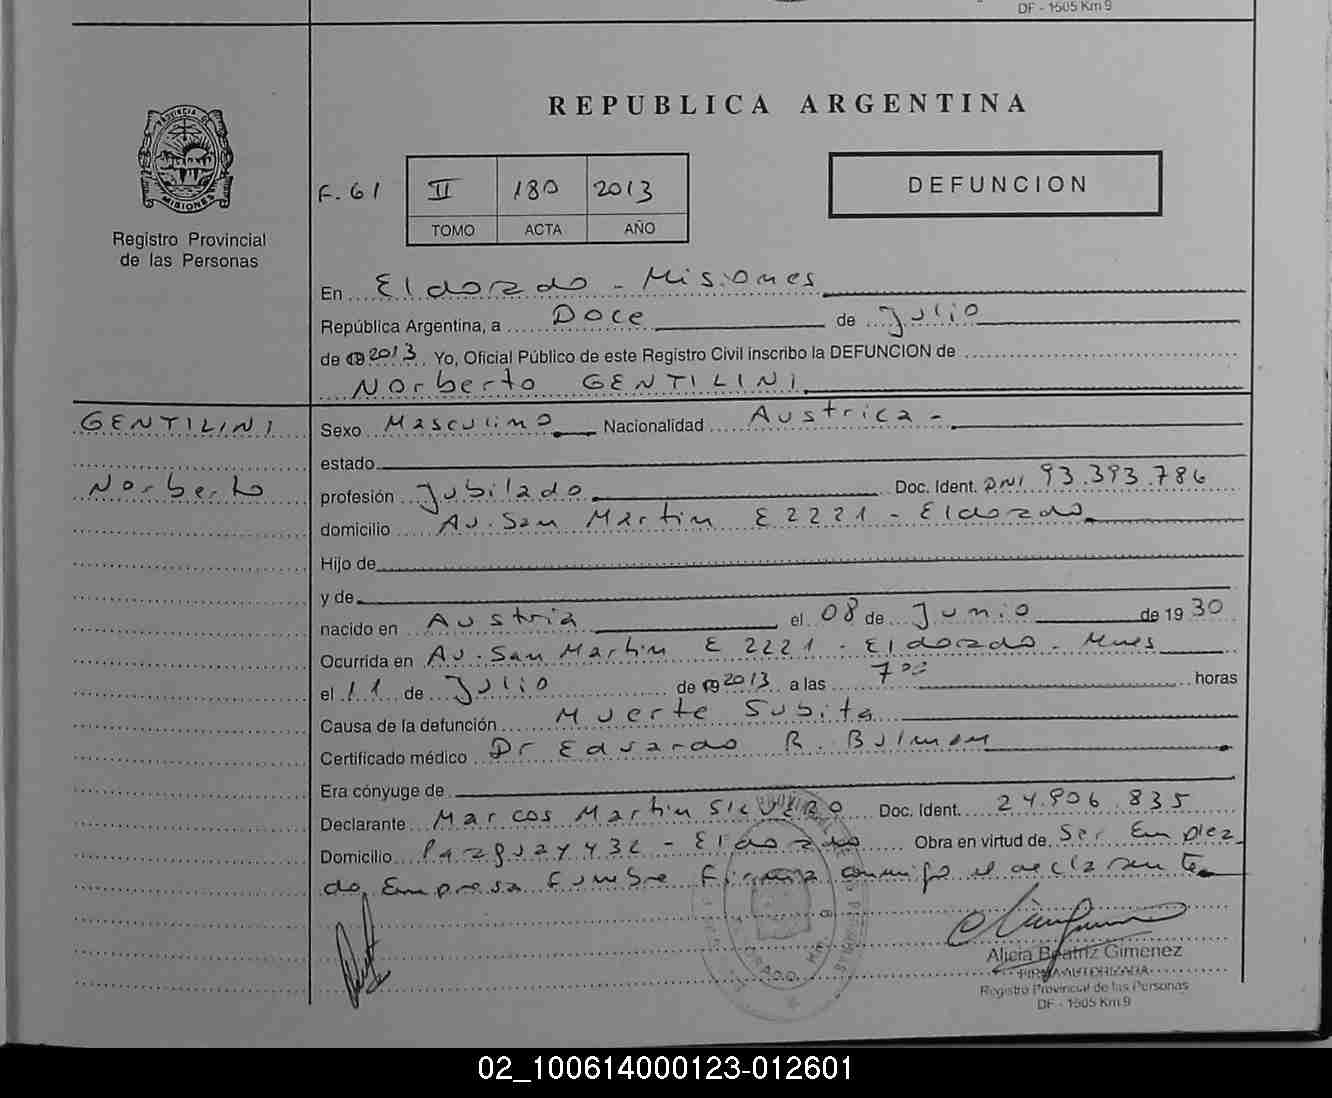 DF - 1505 Km 9
REPUBLICA ARGENTINA
PROVINCIA DE
MISIONES
Registro Provincial
de las Personas
F. 61 II 180 2013
TOMO ACTA AÑO
DEFUNCION
En El dorado - Misiones
República Argentina, a Doce de Julio
de 19 2013. Yo, Oficial Público de este Registro Civil inscribo la DEFUNCION de
Norberto GENTILINI
GENTILINI
Norberto
Sexo Masculino Nacionalidad Austrica -
estado
profesión Jubilado Doc. Ident. DNI 93.393.786
domicilio Av. San Martin E 2221 - Eldorado
Hijo de
y de
nacido en Austria el 08 de Junio de 1930
Ocurrida en Av. San Martin E 2221 - Eldorado - Mnes
el 11 de Julio de 19 2013 a las 7 00 horas
Causa de la defunción Muerte Subita
Certificado médico Dr Eduardo R. Bulman
Era cónyuge de
Declarante Marcos Martin SILVERO Doc. Ident. 24.906.835
Domicilio Paraguay 432 - Eldorado Obra en virtud de Ser Emplea
do Empresa Funebre Firma conmigo el declarante
Alicia Beatriz Gimenez
FIRMA AUTORIZADA
Registro Provincial de las Personas
DF - 1505 Km 9
02_100614000123-012601